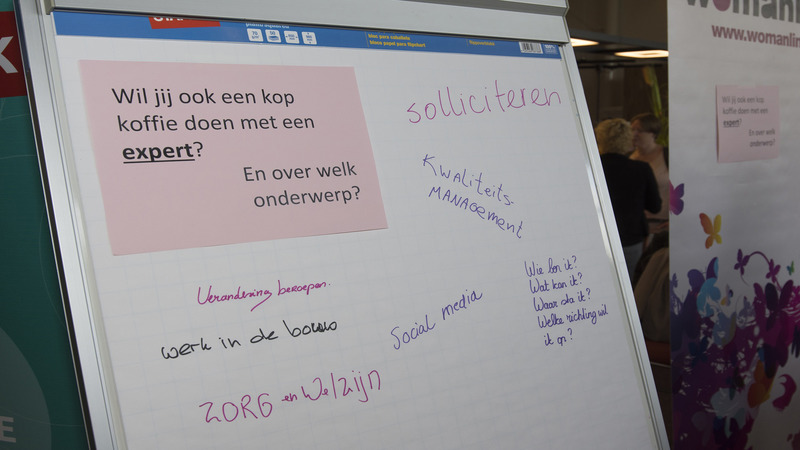 Wil jij ook een kop
koffie doen met een
expert?
En over welk
onderwerp?
solliciteren
Kwaliteits-
MANAGEMENT
Verandering beroepen.
werk in de bouw
Social media
Wie ben ik?
Wat kan ik?
Waar sta ik?
Welke richting wil
ik op?
ZORG en Welzijn
www.womanlin
Wil jij ook een kop
koffie doen met een
expert?
En over welk
onderwerp?